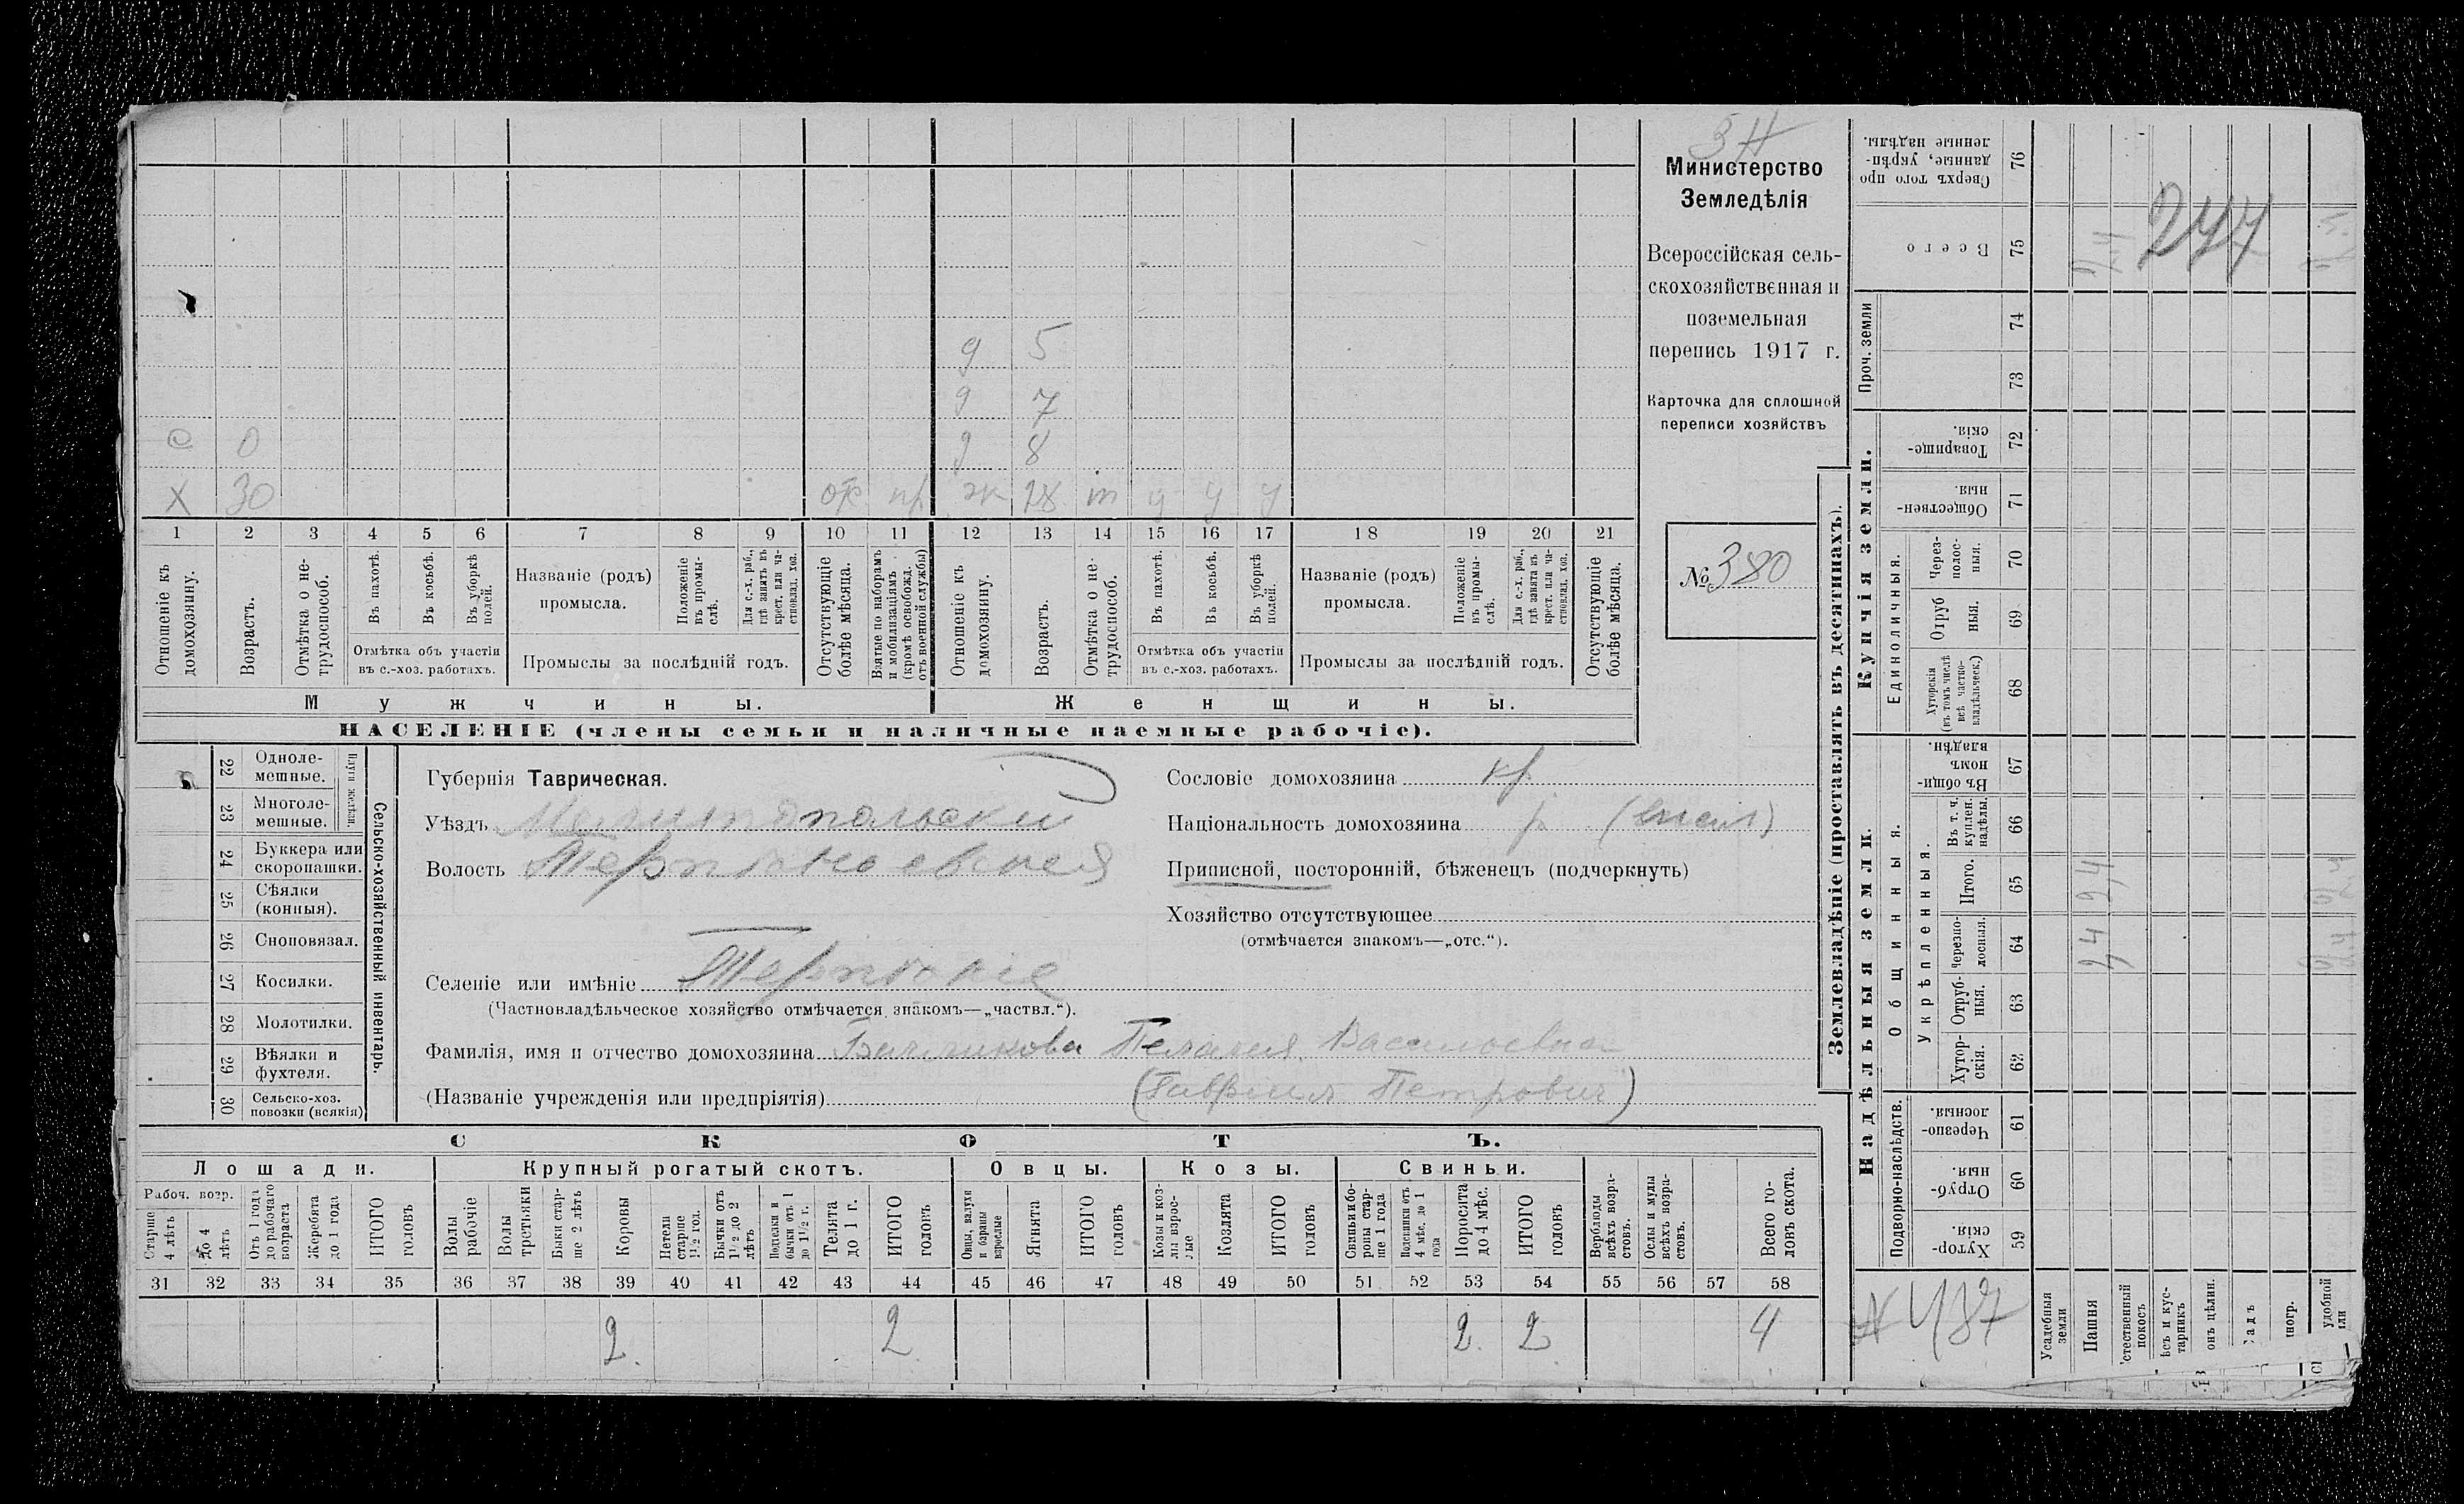 Министерство
Земледѣлія
Всероссійская сель-
скохозяйственная и
поземельная
перепись 1917 г.
Карточка для сплошной
переписи хозяйствъ
№ 380
9 5
9 7
9 8
с 0
х 30 от пр ж 28 т у у у
1 2 3 4 5 6 7 8 9 10 11 12 13 14 15 16 17 18 19 20 21
Отношеніе къ домохозяину.
Возрастъ.
Отмѣтка о не-трудоспособ.
Въ пахотѣ.
Въ косьбѣ.
Въ уборкѣ полей.
Отмѣтка объ участіи въ с.-хоз. работахъ.
Названіе (родъ) промысла.
Положеніе въ промы-слѣ.
Для с.-х. раб., гдѣ занятъ въ крест. или ча-стновлад. хоз.
Промыслы за послѣдній годъ.
Отсутствующіе болѣе мѣсяца.
Взятые по наборамъ и мобилизаціямъ (кромѣ освобожд. отъ военной службы)
Отношеніе къ домохозяину.
Возрастъ.
Отмѣтка о не-трудоспособ.
Въ пахотѣ.
Въ косьбѣ.
Въ уборкѣ полей.
Отмѣтка объ участіи въ с.-хоз. работахъ.
Названіе (родъ) промысла.
Положеніе въ промы-слѣ.
Для с.-х. раб., гдѣ занята въ крест. или ча-стновлад. хоз.
Промыслы за послѣдній годъ.
Отсутствующіе болѣе мѣсяца.
Мужчины. Женщины.
НАСЕЛЕНІЕ (члены семьи и наличные наемные рабочіе).
22 Одноле-мешные.
23 Многоле-мешные.
Плуги желѣзн.
24 Буккера или скоропашки.
25 Сѣялки (конныя).
26 Сноповязал.
27 Косилки.
28 Молотилки.
29 Вѣялки и фухтеля.
30 Сельско-хоз. повозки (всякія)
Сельско-хозяйственный инвентарь.
Губернія Таврическая.
Уѣздъ Мелитопольскій
Волость Терпѣніевская
Селеніе или имѣніе Терпѣніе
(Частновладѣльческое хозяйство отмѣчается знакомъ—„частвл.“).
Сословіе домохозяина кр
Національность домохозяина р
Приписной, посторонній, бѣженецъ (подчеркнуть)
Хозяйство отсутствующее
(отмѣчается знакомъ—„отс.“).
Фамилія, имя и отчество домохозяина Пелагея Васильевна
(Названіе учрежденія или предпріятія) (Гавриил Петрович)
СКОТЪ.
Лошади. Крупный рогатый скотъ. Овцы. Козы. Свиньи.
Рабоч. возр.
Старше 4 лѣтъ
до 4 лѣтъ
Отъ 1 года до рабочаго возраста
Жеребята до 1 года
ИТОГО головъ
Волы рабочіе
Волы третьяки
Быки стар-ше 2 лѣтъ
Коровы
Нетели старше 1½ год.
Бычки отъ 1½ до 2 лѣтъ
Подтелки и бычки отъ 1 до 1½ г.
Телята до 1 г.
ИТОГО головъ
Овцы, валухи и бараны взрослые
Ягнята
ИТОГО головъ
Козы и коз-лы взрос-лые
Козлята
ИТОГО головъ
Свиньи и бо-ровы стар-ше 1 года
Подсвинки отъ 4 мѣс. до 1 года
Поросята до 4 мѣс.
ИТОГО головъ
Верблюды всѣхъ возра-стовъ.
Ослы и мулы всѣхъ возра-стовъ.
Всего го-ловъ скота.
31 32 33 34 35 36 37 38 39 40 41 42 43 44 45 46 47 48 49 50 51 52 53 54 55 56 57 58
2 2 2 2 4
Землевладѣніе (проставлять въ десятинахъ).
Надѣльныя земли. Купчія земли.
Проч. земли
Сверхъ того про данные, укрѣп-ленные надѣлы. 76
Всего 75
74
73
Товарище-скія. 72
Обществен-ныя. 71
Единоличныя.
Через-полос-ныя. 70
Отруб ныя. 69
Хуторскія (въ томъ числѣ всѣ частно-владѣльческ.) 68
Общинныя.
Въ общи-номъ владѣн. 67
Укрѣпленныя.
Въ т. ч. куплен. надѣлы. 66
Итого. 65
Черезпо-лосныя. 64
Отруб-ныя. 63
Хутор-скія. 62
Подворно-наслѣдств.
Черезпо-лосныя. 61
Отруб-ныя. 60
Хутор-скія. 59
Усадебныя земли
Пашня
стественный покосъ
ѣсъ и кус-тарникъ
онъ цѣлин.
адъ
ногр.
удобной
487